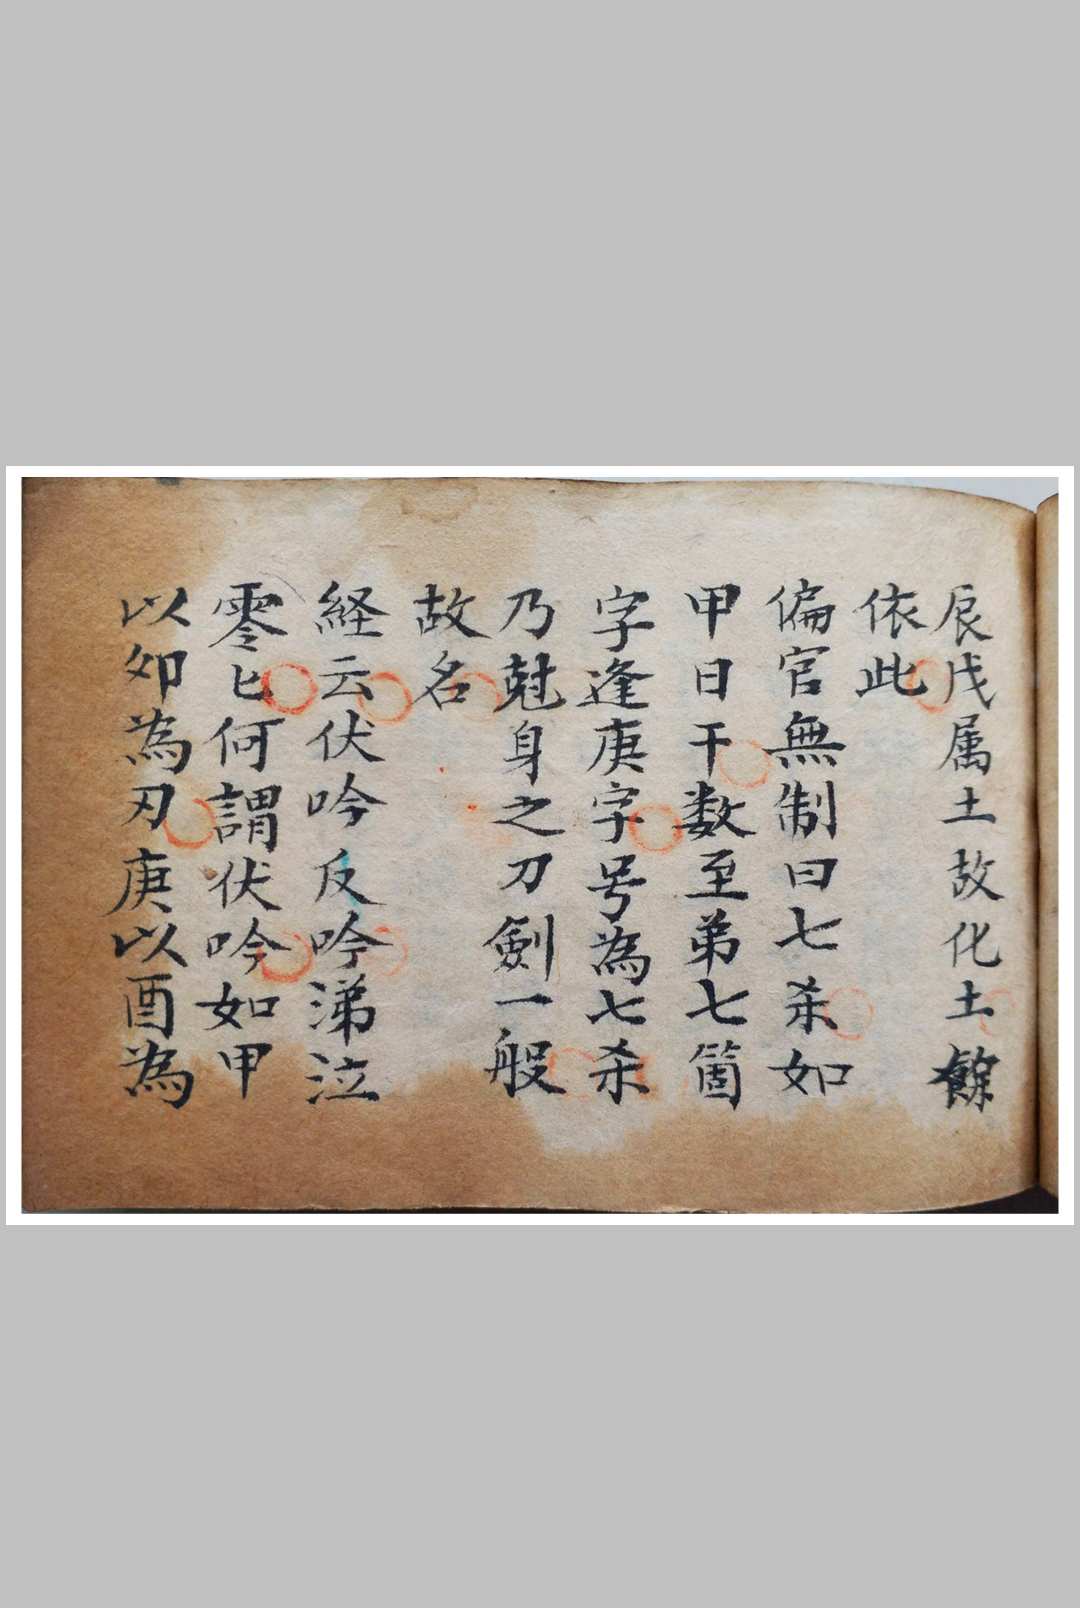 辰戌属土故化土餘
依此
偏官無制曰七杀如
甲日干数至第七箇
字逢庚字号為七杀
乃尅身之刀劍一般
故名
経云伏吟反吟涕泣
零匕何謂伏吟如甲
以卯為刃庚以酉為